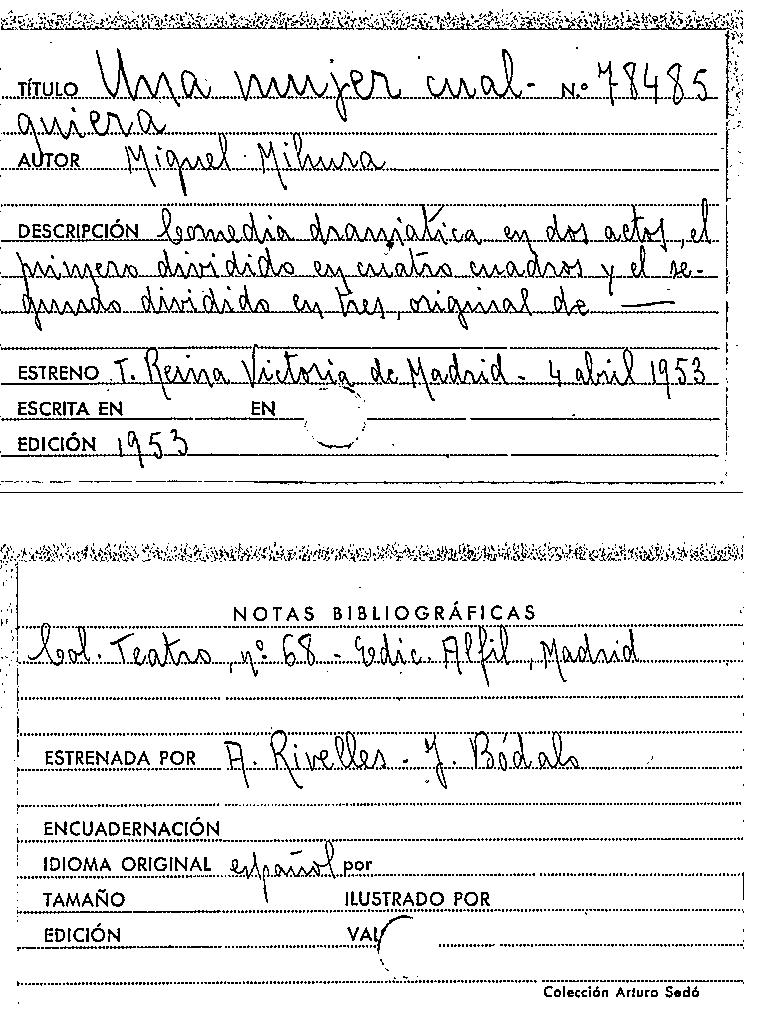 TÍTULO Una mujer cual- N.º 78485
quiera
AUTOR Miguel Mihura
DESCRIPCIÓN Comedia dramática en dos actos, el
primero dividido en cuatro cuadros y el se-
gundo dividido en tres, original de —
ESTRENO T. Reina Victoria de Madrid - 4 abril 1953
ESCRITA EN EN
EDICIÓN 1953
NOTAS BIBLIOGRÁFICAS
Col. Teatro, nº 68 - Edic. Alfil, Madrid
ESTRENADA POR A. Rivelles - J. Bódalo
ENCUADERNACIÓN
IDIOMA ORIGINAL español por
TAMAÑO ILUSTRADO POR
EDICIÓN
Colección Arturo Sedó